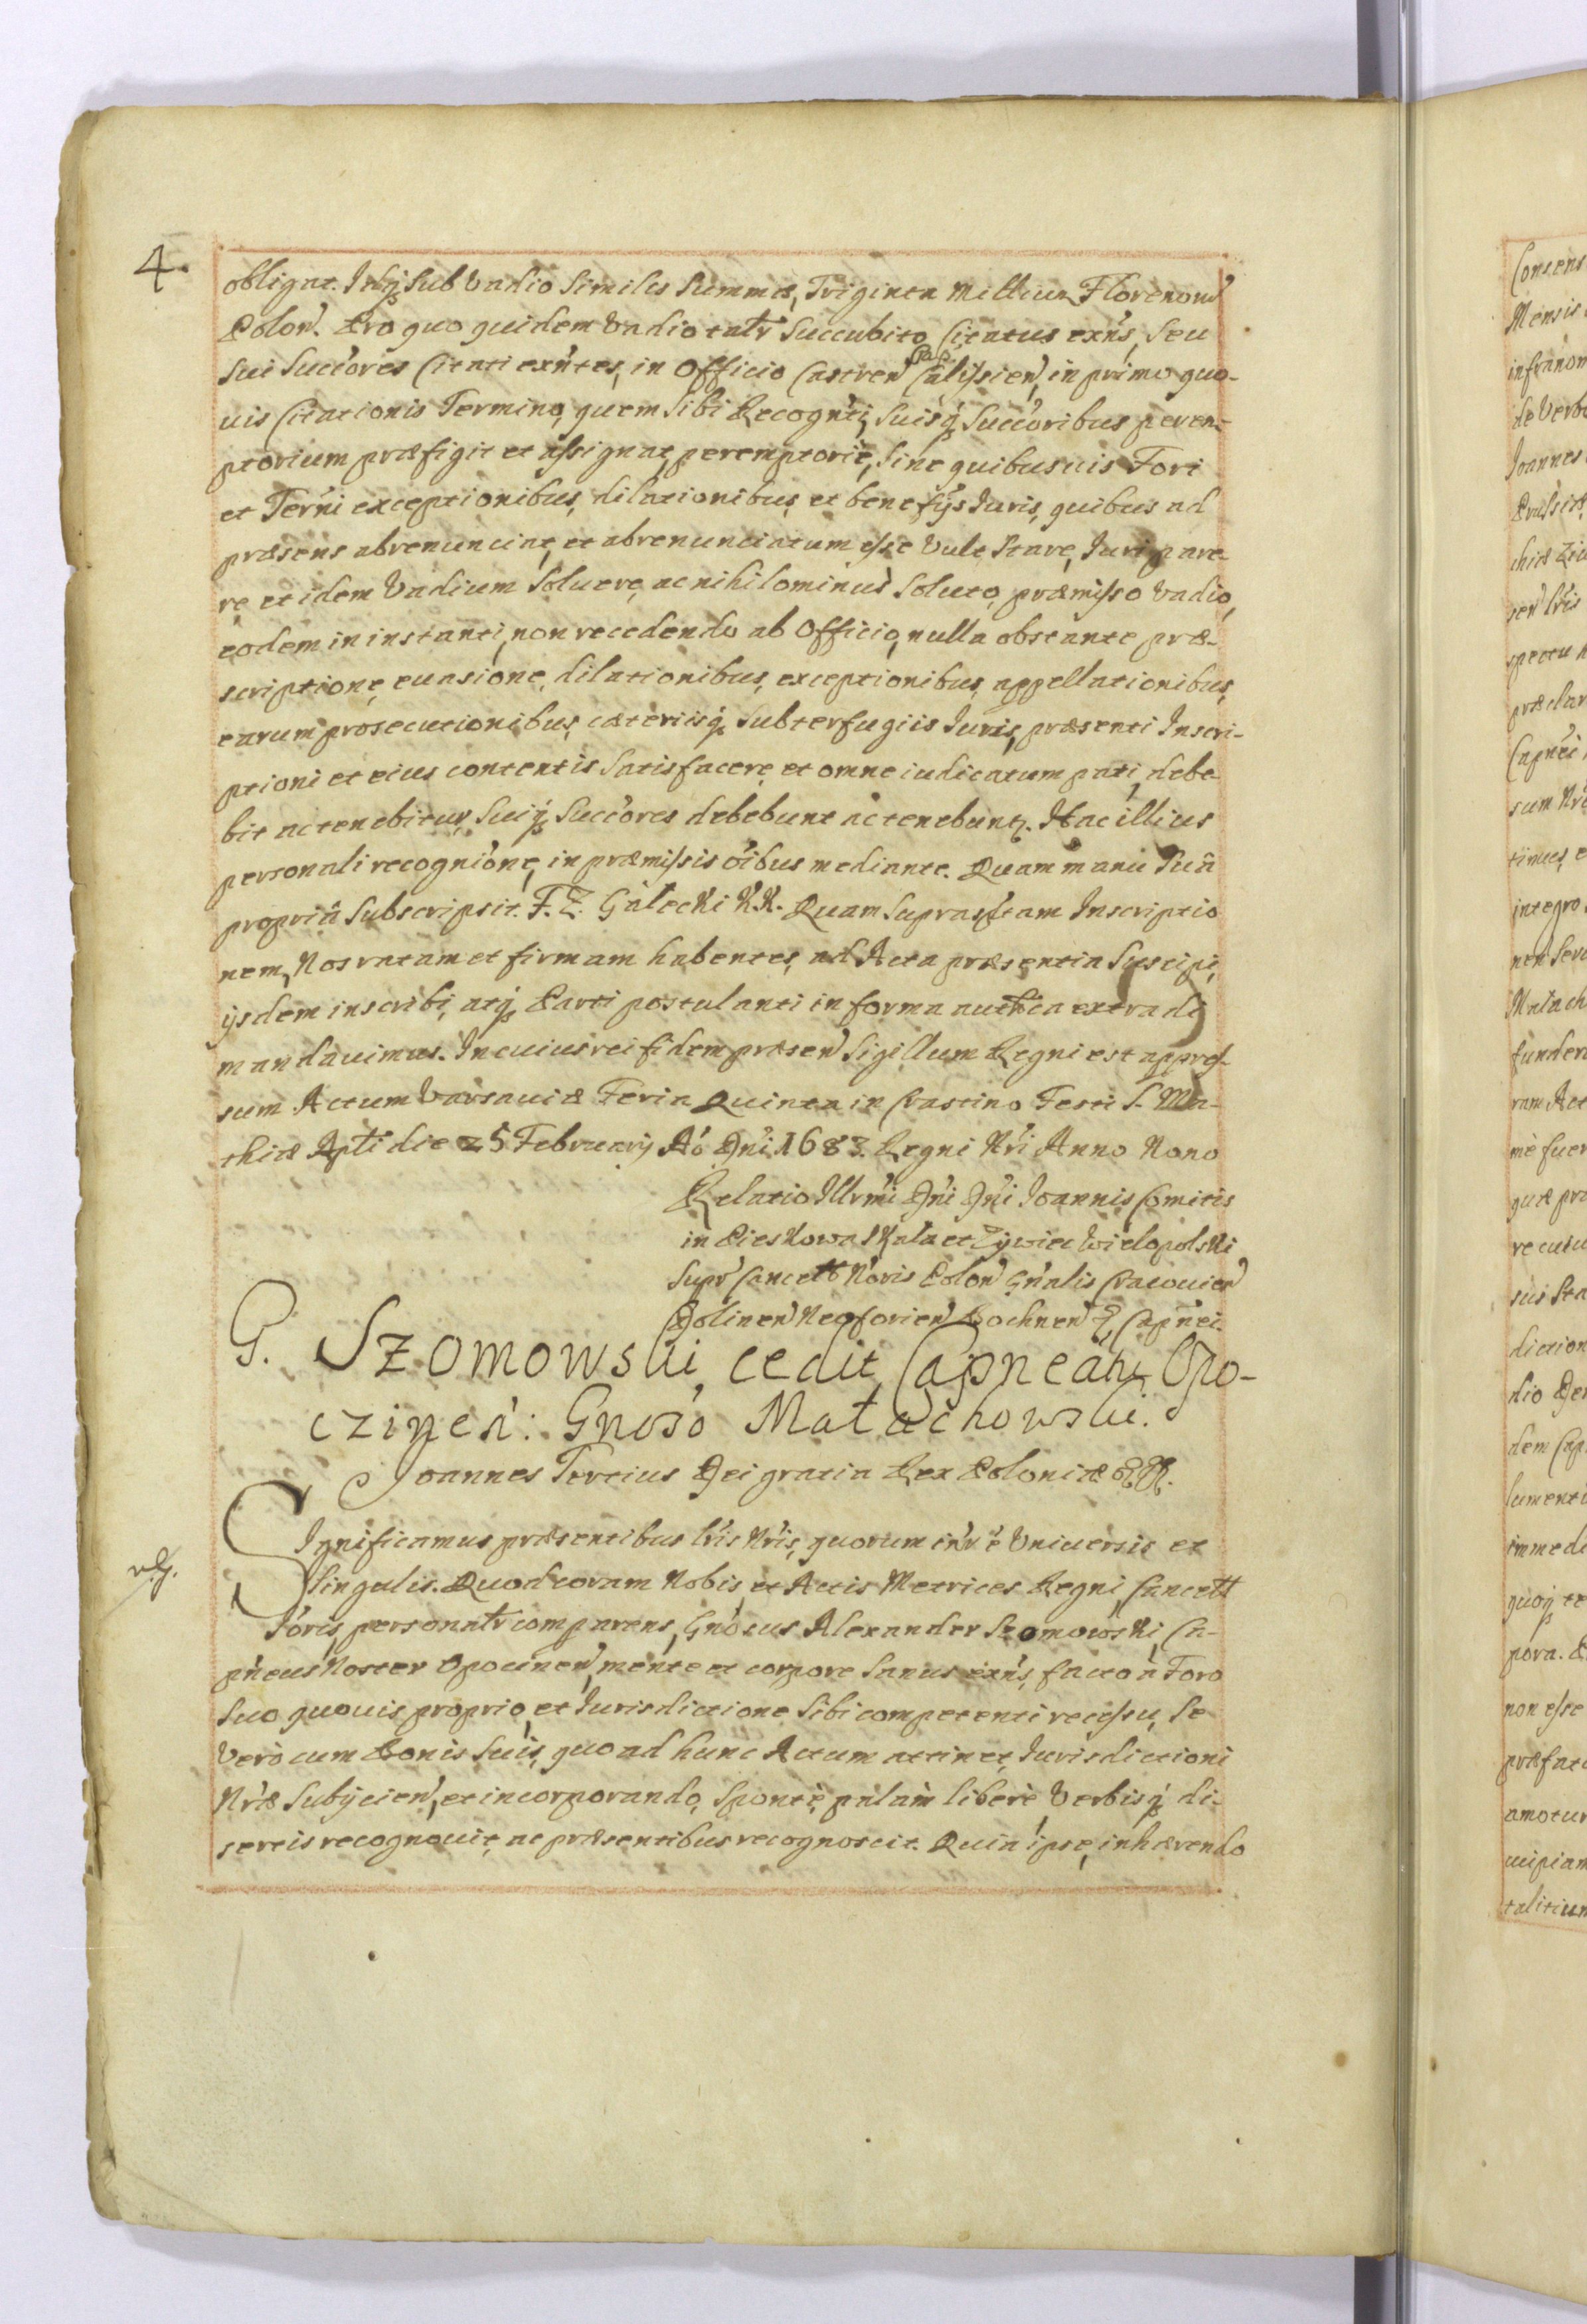 4.
obligat. Idq́ Sub Vadio Similis Summæ, Triginta Millium Florenorũ
Polon̄. Pro quo quidem Vadio talr̃ Succubito, Citatus exñs, Seu
Sui Succ̃ores Citati exñtes, in Officio Castren̄ Calissien̄, in primo quo-
uis Citationis Termino, quem Sibi Recogñti, Suisq́ Succ̃oribus perem-
ptorium præfigit et assignat, peremptorie, Sine quibusuis Fori
et Terñi exceptionibus, dilationibus, et benefijs Iuris, quibus ad
præsens abrenunciat, et abrenunciatum esse Vult, Stare, Iuri pare-
re, et idem Vadium Soluere, ac nihilominus Soluto, præmisso Vadio,
eodem in instanti, non recedendo ab Officio, nulla obstante præ-
scriptione, euasione, dilationibus, exceptionibus, appellationibus,
earum prosecutionibus, cæterisq́ Subterfugiis Iuris, præsenti Inscri-
ptioni et eius contentis Satisfacere, et omne iudicatum pati, debe-
bit ac tenebitur, Suiq́ Succ̃ores debebunt ac tenebunt. Hac illius
personali recognĩone, in præmissis õibus mediante. Quam manu Suâ
propriâ Subscripsit. F. Z. Gałecki K.K. Quam Suprasc̃tam Inscriptio
nem, Nos ratam et firmam habentes, ad Acta præsentia Suscipi,
ijsdem inscribi, atq́ Parti postulanti in forma auth̃ca extradi
mandauimus. In cuius rei fidem præsen̄ Sigillum Regni est appres-
sum Actum Varsauiæ Feria Quinta in Crastino Festi S. Ma-
thiæ Apl̃i die 25 Februarij Aõ Dñi 1683. Regni Nr̃i Anno Nono
Relatio Illr̃mi Dñi Dñi Ioannis Comitis
in Pieskowa Skała et Żywiec Wielopolski
Supr̃ Cancell̃ R̃oris Polon̄ Gñalis Cracouien̄
Dolinen̄ Neoforien̄ Bochnen̄ &, Capñei.
G. Szomowski, cedit Capneatu Opo-
czinen̄: Gnoso Małachowski.
Ioannes Tertius Dei gratia Rex Poloniæ &&.
Significamus præsentibus lr̃is Nr̃is, quorum inr̃e Vniuersis et
Singulis. Quod coram Nobis, et Actis Metrices Regni, Cancell̃
personalr̃ comparens, Gñosus Alexander Szomowski, Ca-
pñeus Noster Opocinen̄, mente et corpore Sanus exñs, facto à Foro
Suo quouis proprio, et Iurisdictione Sibi competenti recessu, Se
Verò cum Bonis Suis, quoad hunc Actum attinet, Iurisdictioni
Nr̃æ Subijcien̄, et incorporando, Spontè, palàm liberè, Verbisq́ di-
sertis recognouit, ac præsentibus recognoscit. Quia ipse, inhærendo